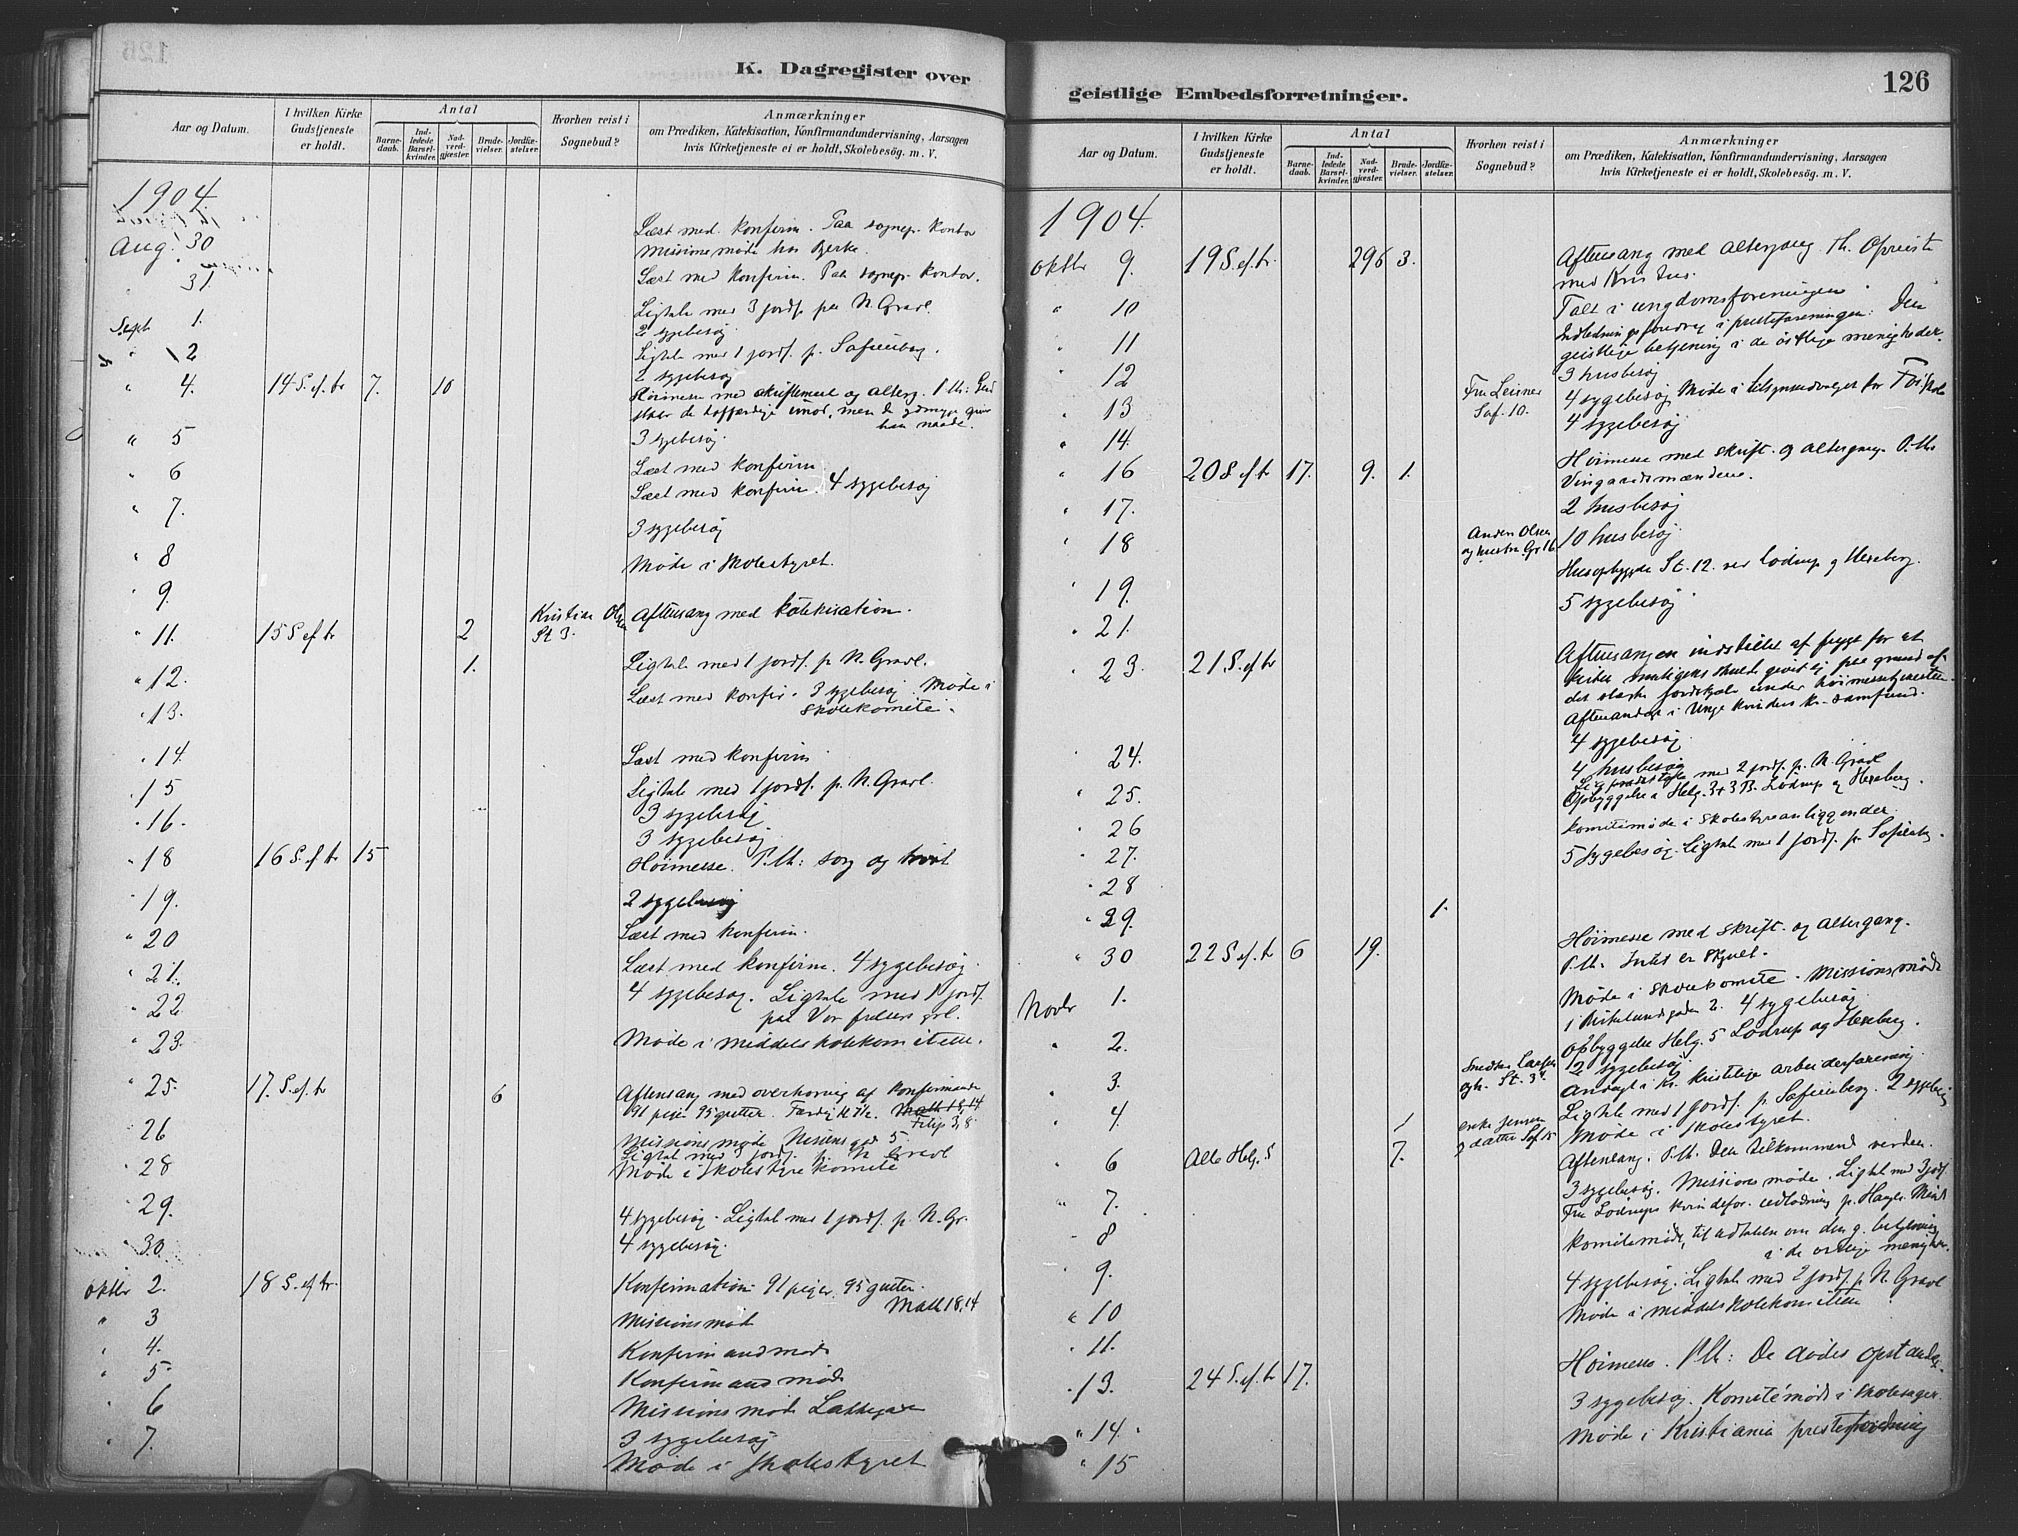 K. Dagregister over
Aar og Datum.
I hvilken Kirke Gudstjeneste er holdt.
Antal
Barne-daab.
Ind-ledede Barsel-kvinder.
Nad-verd-gjæster.
Brude-vielser.
Jordfæ-stelser.
Hvorhen reist i Sognebud?
Anmærkninger
om Prædiken, Katekisation, Konfirmandundervisning, Aarsagen
hvis Kirketjeneste ei er holdt, Skolebesög. m. V.
1904
Læst med konfirm. Paa sognepr. kontor
Aug. 30 Missionsmöde hos Bjerke
" 31. Læst med konfirm. Paa sognepr. kontor.
Sept 1. Ligtale med 3 jordf. paa N. Gravl.
2 sygebesög
" 2 Ligtale med 1 jordf. p. Sofienberg.
2 sygebesög
" 4. 14 S. ef. tr 7. 10 Höimesse med skriftemaal og alterg. P. th: Gud
staar de hoffærdige imod, men de ydmyge giver
han naade.
" 5 3 sygebesög.
" 6 Læst med konfirm
" 7. Læst med konfirm. 4 sygebesög
3 sygebesög
" 8 Möde i skolestyret.
" 9.
" 11. 15 S ef tr 2 Kristian Olsen St 3. Aftensang med katekisation.
" 12. 1. Ligtale med 1 jordf. p. N. Gravl.
" 13. Læst med konfir. 3 sygebesög. Möde i
skolekomite.
" 14. Læst med konfirm
" 15 Ligtale med 1 jordf. p. N. Gravl.
" 16. 3 sygebesög
3 sygebesög
" 18 16 S. ef tr 15 Höimesse. P. th: sorg og
" 19. 2 sygebesög
" 20 Læst med konfirm.
" 21. Læst med konfirm. 4 sygebesög
" 22 4 sygebesög. Ligtale med 1 jordf.
paa Vor frelsers grl.
" 23. Möde i middelskolekomiteen.
" 25. 17. S. ef. tr 6 Aftensang med overhöring af konfirmander
91 piger 95 gutter. Math 18,14
Filip 3,8
26 Missionsmöde 5
Ligtale med 3 jordf. p. N Gravl
28 Möde i skolestyrekomite
29. 4 sygebesög. Ligtale med 1 jordf. p. N. Gr.
30 4 sygebesög.
Oktbr 2. 18 S. ef tr. Konfirmation 91 piger 95 gutter.
Math 18,14
" 3 Missionsmöde
" 4. Konfirmandmöde
" 5. Konfirmandmöde
" 6 Missionsmöde Lakkegaten
" 7. 3 sygebesög
Möde i skolestyret
geistlige Embedsforretninger.
126
Aar og Datum.
I hvilken Kirke Gudstjeneste er holdt.
Antal
Barne-daab.
Ind-ledede Barsel-kvinder.
Nad-verd-gjæster.
Brude-vielser.
Jordfæ-stelser.
Hvorhen reist i Sognebud?
Anmærkninger
om Prædiken, Katekisation, Konfirmandundervisning, Aarsagen
hvis Kirketjeneste ei er holdt, Skolebesög. m. V.
1904.
Oktbr 9. 19 S. ef. tr. 296 3. Aftensang med altergang. Th. Opreist
med Kristus.
" 10 Talt i ungdomsforeningen.
" 11 Indledningsforedrag i presteforeningen: Den
geistlige betjening i de östlige menigheder.
" 12 3 husbesög
" 13 Fru Leisner Sof. 10. 4 sygebesög Möde i tilsynsudvalget for
" 14. 4 sygebesög
" 16 20 S ef tr 17. 9. 1. Höimesse med skrift. og altergang. P. th:
Vingaardsmændene.
" 17. 2 husbesög
" 18 Anders Olsen og hustru Gr 16 10 husbesög
" 19. Husopbyggelse St. 12. ved Lodrup og Hexeberg.
" 21. 5 sygebesög
" 23. 21. S. ef tr Aftensangen indstillet af frygt for at
kirken muligens skulde givet ej paa grund af
det stærke jordskjælv under höimessetjenesten.
Aftenandagt i Unge kvinders kr. samfund.
" 24. 4 sygebesög
" 25. 4 husbesög
Ligtale med 2 jordf. p. N. Gravl
" 26 Opbyggelse i Helg. 3 + 3 B. Lodrup og Hexeberg.
" 27. Komitemöde i skolestyreanliggender.
" 28 5 sygebesög. Ligtale med 1 jordf. p. Sofienberg.
" 29. 1.
" 30 22 S. ef. tr 6 19. Höimesse med skrift. og altergang.
P. th. Intet er skjult.
Novbr 1. Möde i skolekomite. Missionsmöde
i Birkelundgaden 2. 4 sygebesög
" 2. Opbyggelse Helg. 5 Lodrup og Hexeberg.
" 3. Larsen St. 3. 2 sygebesög
Andagt i Kr. kristlige arbeiderforening
" 4. 1 enke Jensen og datter Sof 15 Ligtale med 1 jordf. p. Sofienberg. 2 sygebesög
Möde i skolestyret.
" 6 Alle Helg. S 7. Aftensang. P. th. Den tilkommende verden.
" 7. 3 sygebesög. Missionsmöde. Ligtale med 3 jordf.
Fru Lodrups kvindefor. udlodning p. Hauges Minde
" 8 Komitemöde, til udtalelse om den g. betjening
i de östlige menigheder.
" 9. 4 sygebesög. Ligtale med 2 jordf. p. N. Gravl
" 10 Möde i middelskolekomiteen
" 11.
" 13. 24 S. ef. tr 17. Höimesse. P. th: De dödes opstandelse.
" 14. 3 sygebesög. Komitemöde i skolesager.
" 15 Möde i Kristiania presteforening